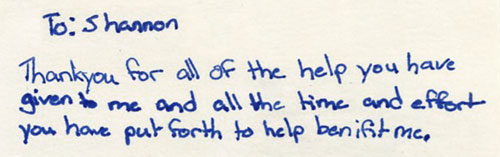 To: Shannon
Thankyou for all of the help you have
given to me and all the time and effort
you have put forth to help benifit me.